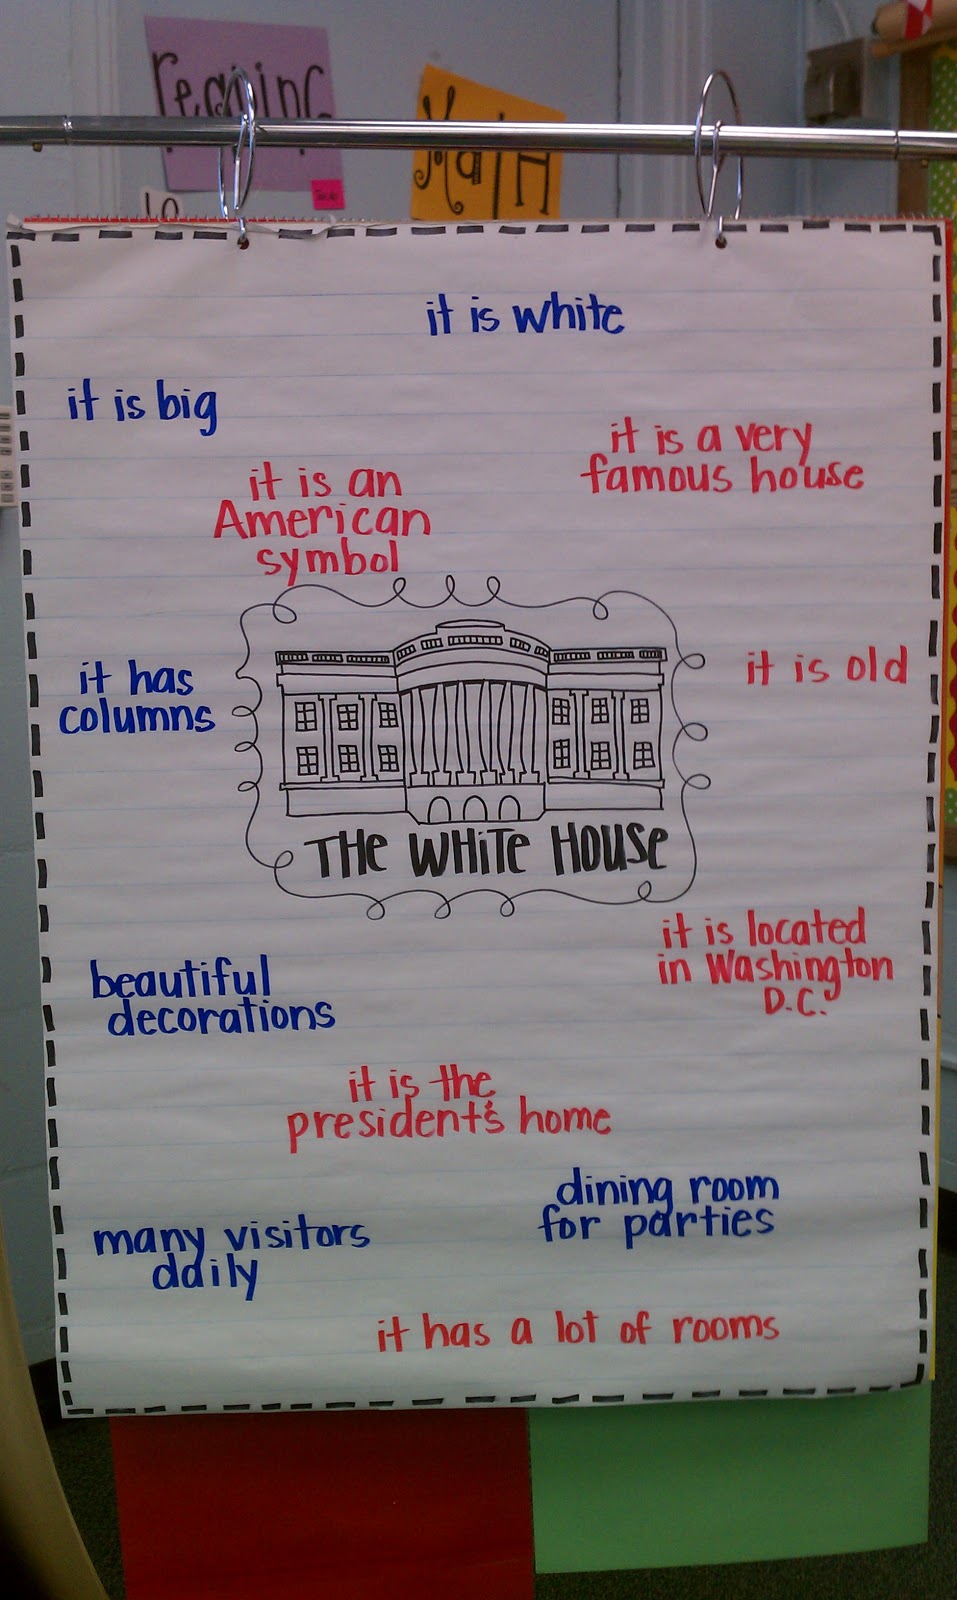 reading
Math
it is white
it is big
it is a very
famous house
it is an
American
symbol
it has
columns
it is old
THE WHITE HOUSE
it is located
in Washington
D.C.
beautiful
decorations
it is the
president's home
dining room
for parties
many visitors
daily
it has a lot of rooms